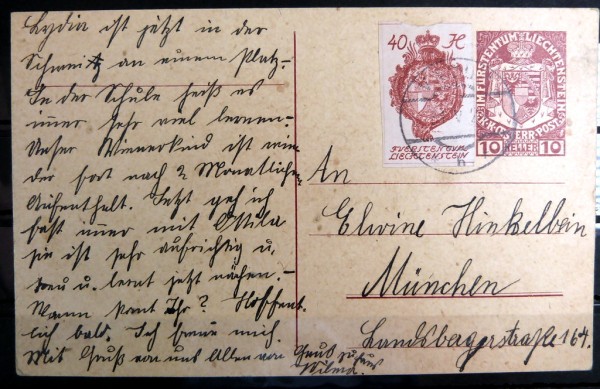 Lydia ist jetzt in der
Schweitz an einem Platz.-
In der Schule heißt es
immer sehr viel lernen.-
Unser Wienerkind ist wie-
der fort nach 2 Monatlichem
Aufenthalt. Jetzt geh ich
fast immer mit
sie ist sehr aufrichtig u.
treu u. lernt jetzt nähen.-
Wann komt Ihr? Hoffent
lich bald. Ich freue mich
Mit Gruß von uns Allen von
Wilma.
40 H
FVERSTENTVM
LIECHTENSTEIN
IM FÜRSTENTUM LIECHTENSTEIN
K.K.ÖSTERR.POST
10 HELLER 10
An
Elwine Hinkelbein
München
Landsbergerstraße 164.